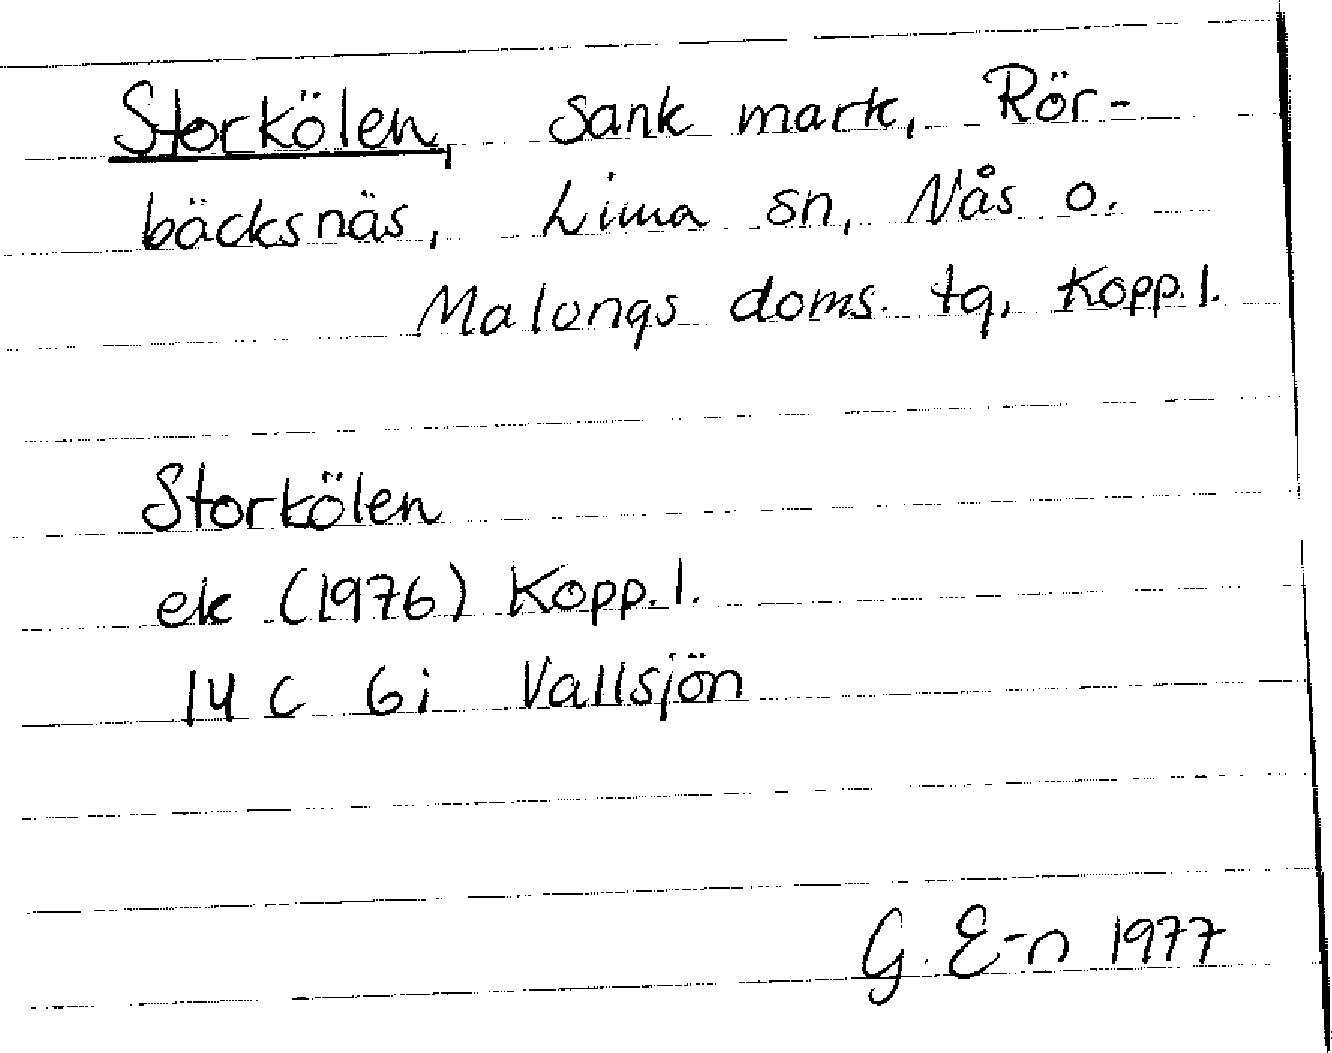 Storkölen, sank mark, Rör-
bäcksnäs, Lima sn, Nås o.
Malungs doms. tg, Kopp.l.
Storkölen
ek (1976) Kopp.l.
14 C 6i Vallsjön
G. E-n 1977